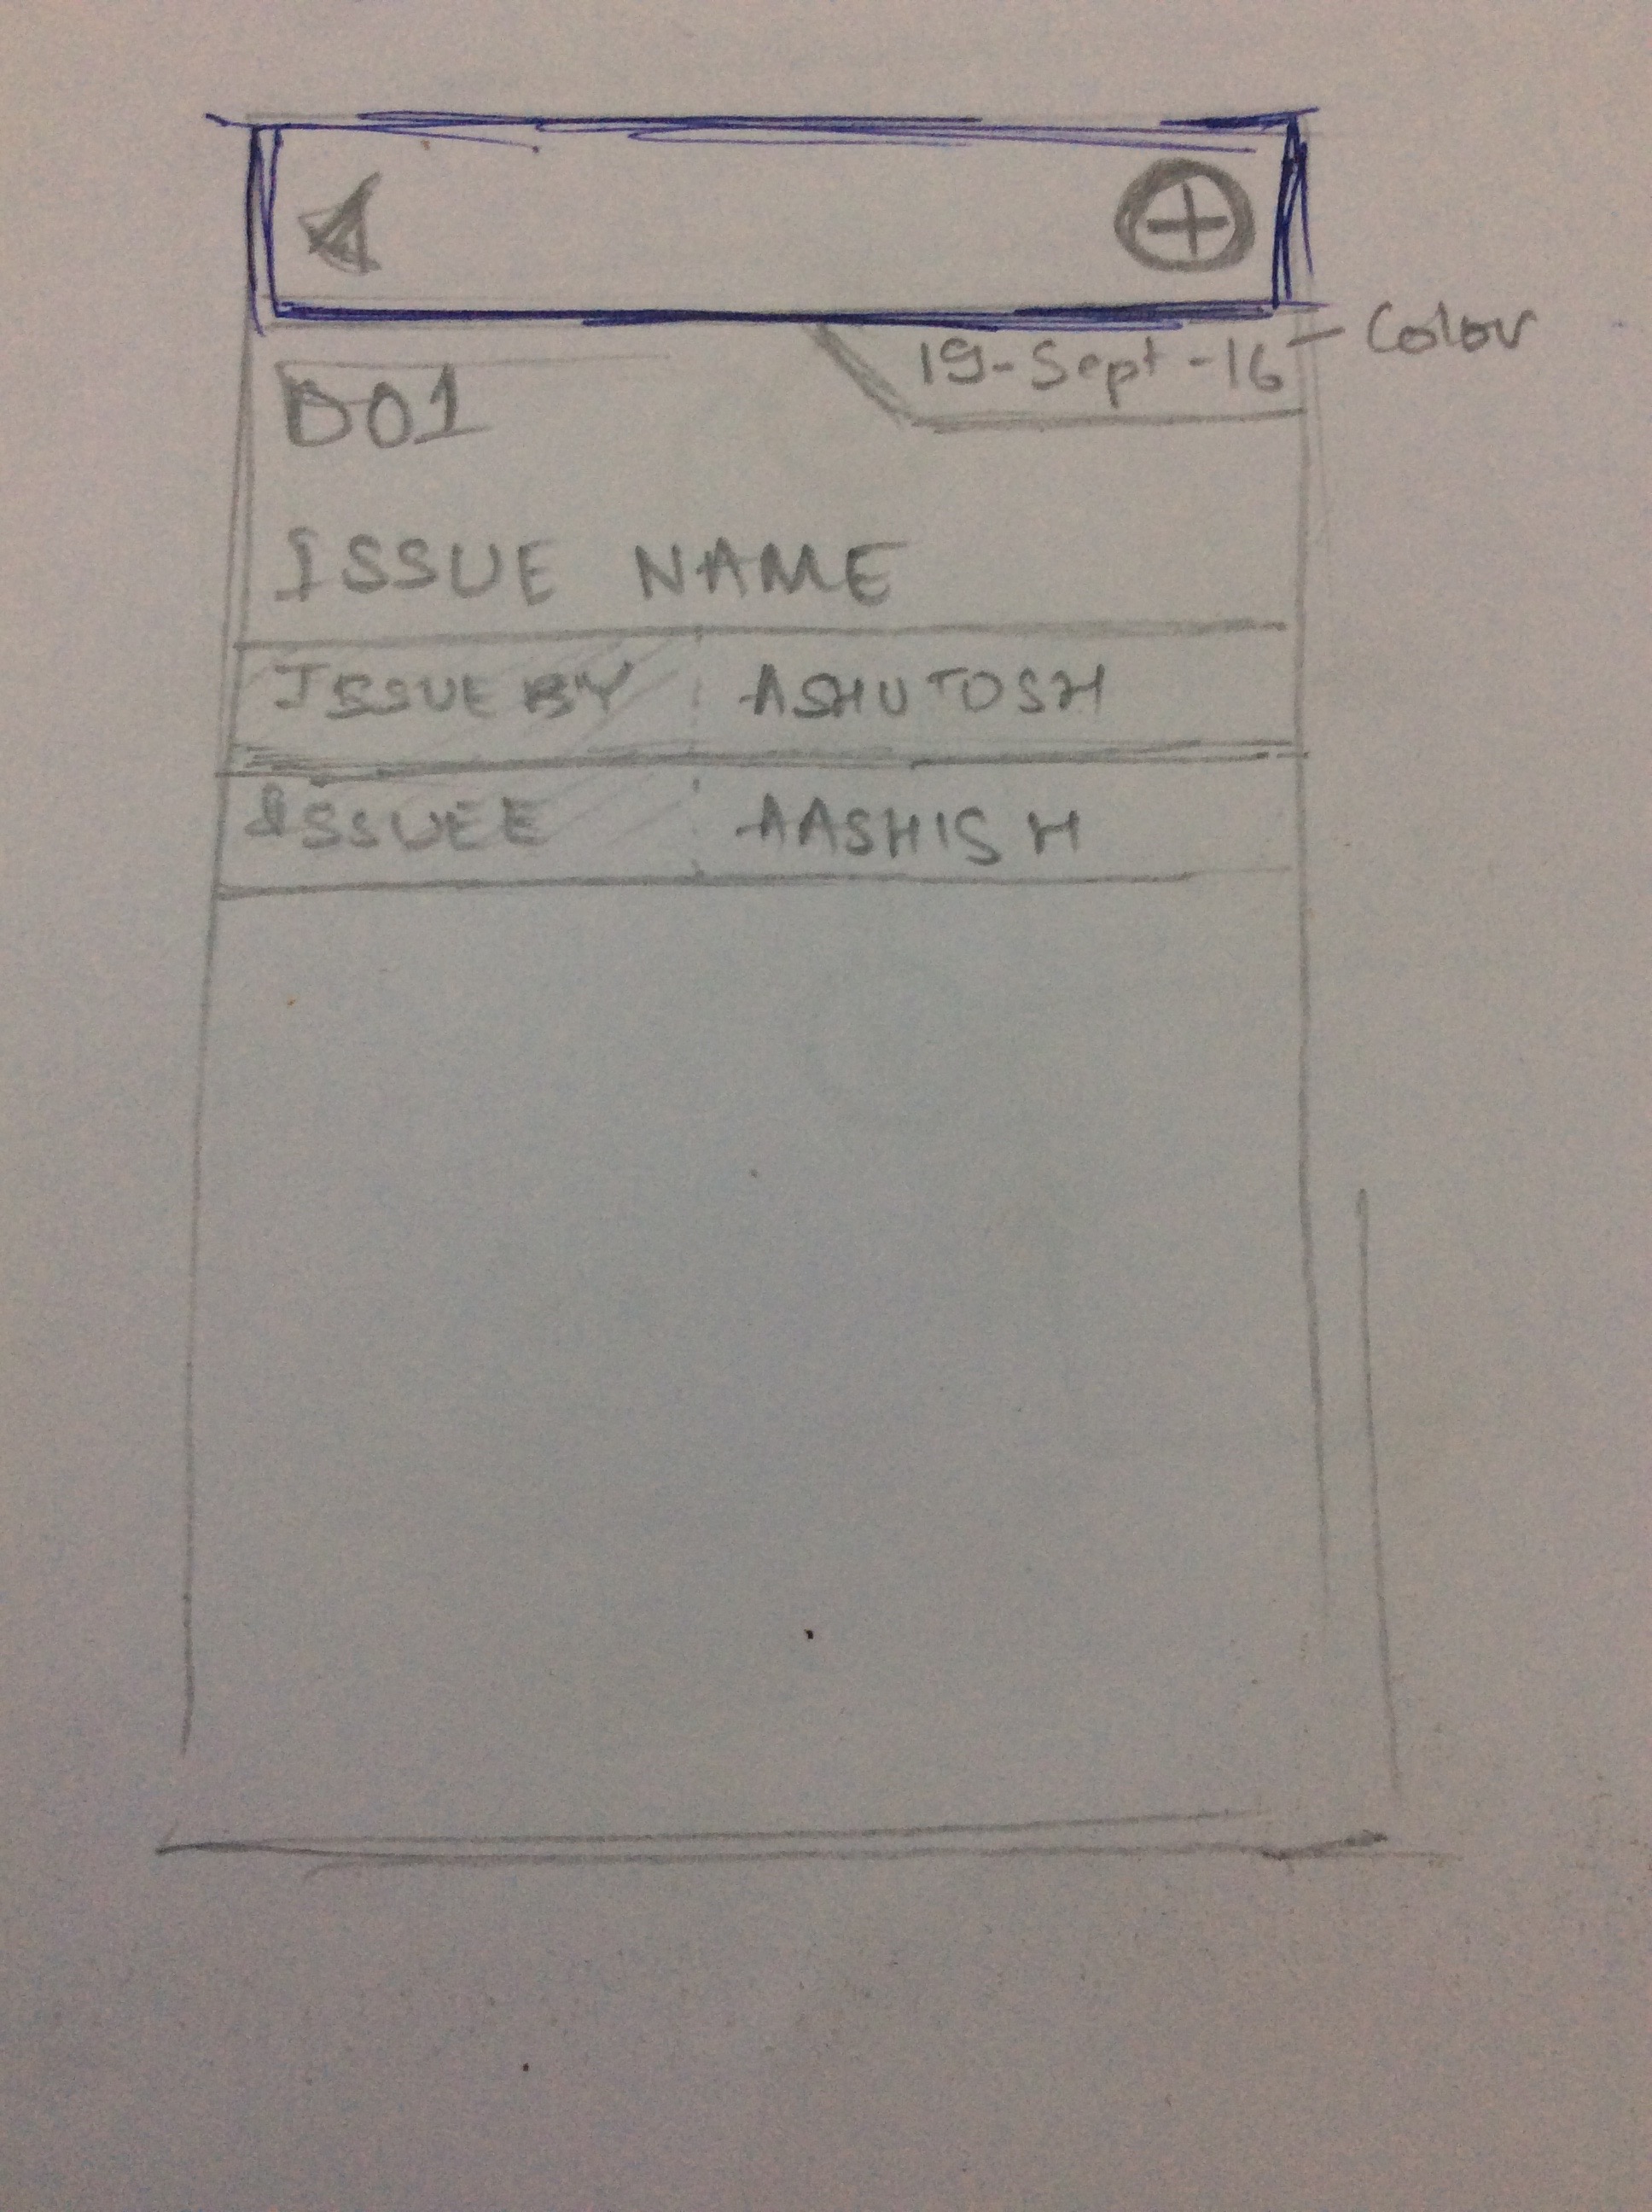 19-Sept-16 - Color
D01
ISSUE NAME
ISSUE BY ASHUTOSH
ISSUEE AASHISH